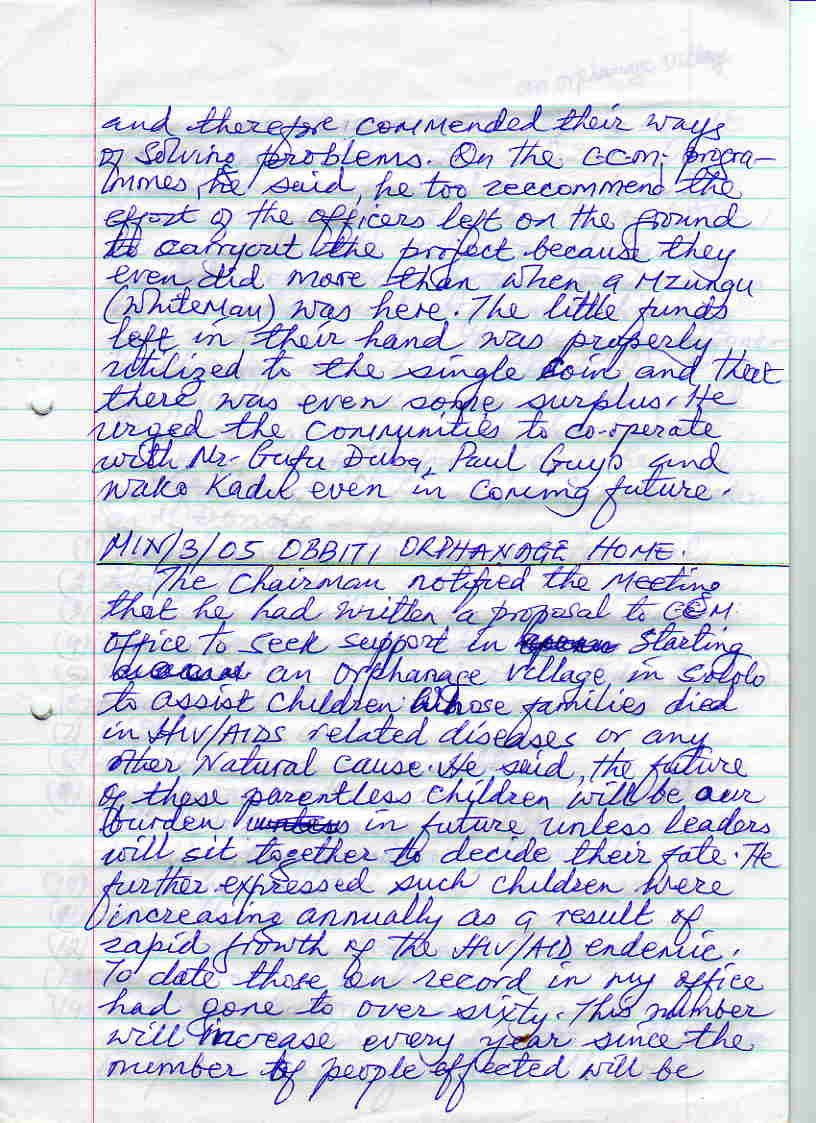 an orphanage village
and therefore commended their ways
of Solving problems. On the C.C.M; progra-
mmes, he said, he too reccommend the
effort of the officers left on the ground
to carryout the project because they
even did more than when a Mzungu
(Whiteman) was here. The little funds
left in their hand was properly
utilized to the single coin and that
there was even some surplus. He
urged the communities to co-operate
with Mr. Gufu Duba, Paul Guyo and
Wako Kadu even in coming future.
MIN/3/05 OBBITI ORPHANAGE HOME.
The Chairman notified the Meeting
that he had written a proposal to CCM
office to seek support in starting
an orphanage village in Sololo
to assist children whose families died
in HIV/AIDS related diseases or any
other Natural cause. He said, the future
of these parentless children will be our
burden in future unless leaders
will sit together to decide their fate. He
further expressed such children were
increasing annually as a result of
rapid growth of the HIV/AID endemic.
To date those on record in my office
had gone to over sixty. This number
will increase every year since the
number of people effected will be